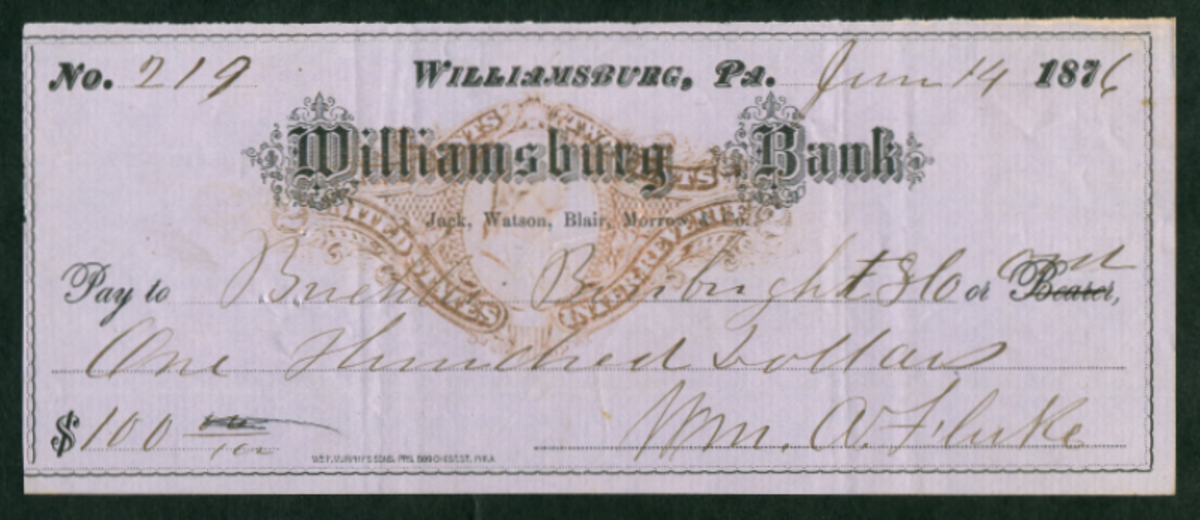 No. 219 Williamsburg, Pa. June 14 1876
Williamsburg Bank
Jack, Watson, Blair, Morrow & Co.
UNITED STATES
INTER. REVENUE
Pay to & Co or Bearer,
One Hundred Dollars
$100
Wm. A. Fluke
W.F. MURPHY'S SONS, PRS. 509 CHEST. ST. PHILA